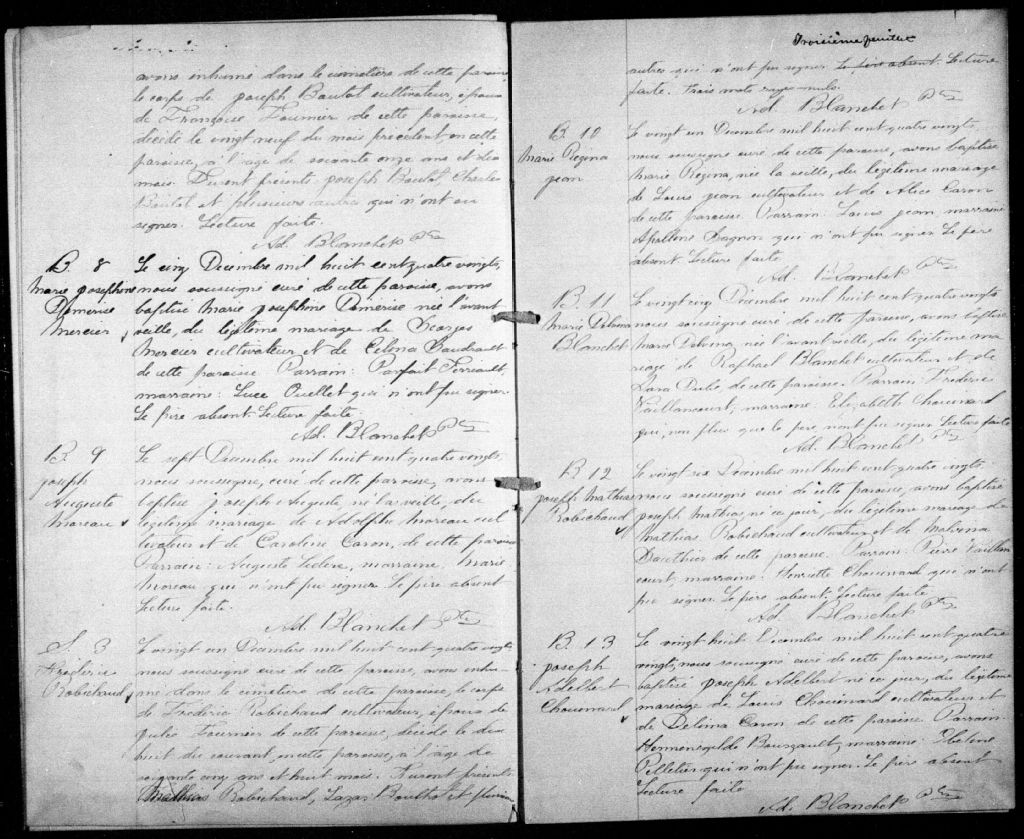 avons inhumé dans le cimetière de cette paroisse
le corps de Joseph Boutot cultivateur, époux
de Françoise Fournier de cette paroisse,
décédé le vingt neuf du mois précédent en cette
paroisse, à l'âge de soixante onze ans et
mois. Furent présents Joseph Boutot, Charles
Boutot et plusieurs autres qui n'ont su
signer. Lecture faite.
Ad. Blanchet Ptre
B. 8
Marie Josephine
Démerise
Mercier
Le cinq Décembre mil huit cent quatre vingts,
nous soussigné curé de cette paroisse, avons
baptisé Marie Josephine Démerise née l'avant
veille, du légitime mariage de Georges
Mercier cultivateur et de Célina Gaudrault
de cette paroisse Parrain: Parfait Perreault
marraine: Luce Ouellet qui n'ont pu signer.
Le père absent. Lecture faite.
Ad. Blanchet Ptre
B. 9
Joseph
Auguste
Moreau
Le sept Décembre mil huit cent quatre vingts,
nous soussigné, curé de cette paroisse, avons
baptisé Joseph Auguste né la veille, du
légitime mariage de Adolphe Moreau cul
tivateur et de Caroline Caron, de cette paroisse
Parrain: Auguste Leclerc, marraine, Marie
Moreau qui n'ont pu signer Le père absent
Lecture faite.
Ad. Blanchet Ptre
S. 3
Fréderic
Robichaud
Le vingt un Décembre mil huit cent quatre vingts
nous soussigné curé de cette paroisse, avons inhu
mé dans le cimetière de cette paroisse, le corps
de Fréderic Robichaud cultivateur, époux de
Julie Fournier de cette paroisse, décédé le dix
huit du courant, en cette paroisse, à l'âge de
soixante cinq ans et huit mois. Furent présents
Mathias Robichaud, Lazare Boulhot et plusieurs
Troisième feuillet
autres qui n'ont pu signer Le père absent. Lecture
faite. Trois mots rayés nuls.
Ad. Blanchet Ptre
B. 10
Marie Régina
Jean
Le vingt un Décembre mil huit cent quatre vingts,
nous soussigné curé de cette paroisse, avons baptisé
Marie Régina, née la veille, du légitime mariage
de Louis Jean cultivateur et de Alice Caron
de cette paroisse. Parrain. Louis Jean, marraine
Apolline Gagnon qui n'ont pu signer Le père
absent Lecture faite
Ad. Blanchet Ptre
B. 11
Marie Delvina
Blanchet
Le vingt cinq Décembre mil huit cent quatre vingts
nous soussigné curé de cette paroisse, avons baptisé
Marie Delvina, née l'avant veille, du légitime ma
riage de Raphael Blanchet cultivateur et de
Zara Dubé, de cette paroisse. Parrain Fréderic
Vaillancourt, marraine. Elizabeth Chouinard
qui, non plus que le père, n'ont pu signer Lecture faite
Ad. Blanchet Ptre
B. 12
Joseph Mathias
Robichaud
Le vingt six Décembre mil huit cent quatre vingts
nous soussigné curé de cette paroisse, avons baptisé
Joseph Mathias né ce jour, du légitime mariage de
Mathias Robichaud cultivateur et de Malvina
Gauthier de cette paroisse. Parrain. Pierre Vaillan
court, marraine. Henriette Chouinard qui n'ont
pu signer Le père absent. Lecture faite
Ad. Blanchet Ptre
B. 13
Joseph
Adelbert
Chouinard
Le vingt huit Décembre mil huit cent quatre
vingts, nous soussigné curé de cette paroisse, avons
baptisé Joseph Adelbert né ce jour, du légitime
mariage de Louis Chouinard cultivateur et
de Delima Caron de cette paroisse. Parrain
Hermenegilde Bourgault, marraine
Pelletier qui n'ont pu signer. Le père absent
Lecture faite
Ad. Blanchet Ptre